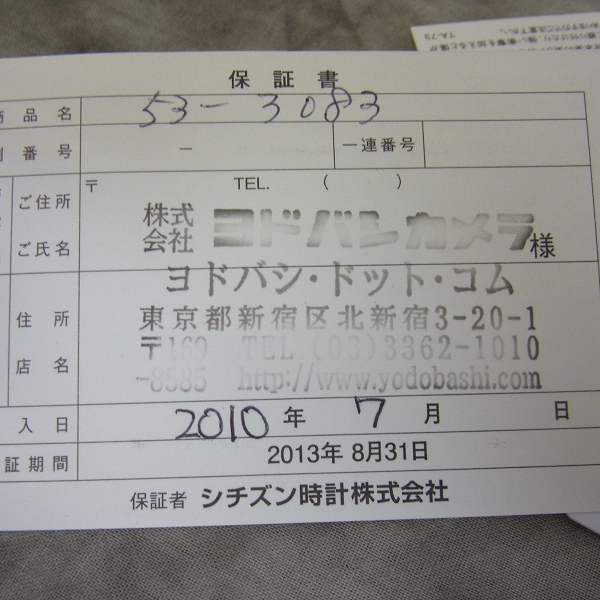 保証書
商品名 53-3083
別番号 － 一連番号
〒 TEL. ( )
ご住所
ご氏名
株式会社 ヨドバシカメラ 様
ヨドバシ・ドット・コム
住所 東京都新宿区北新宿3-20-1
店名 〒169-8585 TEL (03)3362-1010
http://www.yodobashi.com
入日 2010年 7月 日
証期間 2013年 8月31日
保証者 シチズン時計株式会社
TA-73